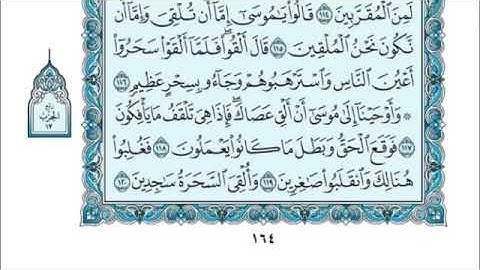 لَمِنَ ٱلْمُقَرَّبِينَ ١١٤ قَالُوا۟ يَٰمُوسَىٰٓ إِمَّآ أَن تُلْقِىَ وَإِمَّآ أَن
نَّكُونَ نَحْنُ ٱلْمُلْقِينَ ١١٥ قَالَ أَلْقُوا۟ فَلَمَّآ أَلْقَوْا۟ سَحَرُوٓا۟
أَعْيُنَ ٱلنَّاسِ وَٱسْتَرْهَبُوهُمْ وَجَآءُو بِسِحْرٍ عَظِيمٍ ١١٦
۞ وَأَوْحَيْنَآ إِلَىٰ مُوسَىٰٓ أَنْ أَلْقِ عَصَاكَ فَإِذَا هِىَ تَلْقَفُ مَا يَأْفِكُونَ
١١٧ فَوَقَعَ ٱلْحَقُّ وَبَطَلَ مَا كَانُوا۟ يَعْمَلُونَ ١١٨ فَغُلِبُوا۟
هُنَالِكَ وَٱنقَلَبُوا۟ صَٰغِرِينَ ١١٩ وَأُلْقِىَ ٱلسَّحَرَةُ سَٰجِدِينَ ١٢٠
ربع
الحزب
١٧
١٦٤